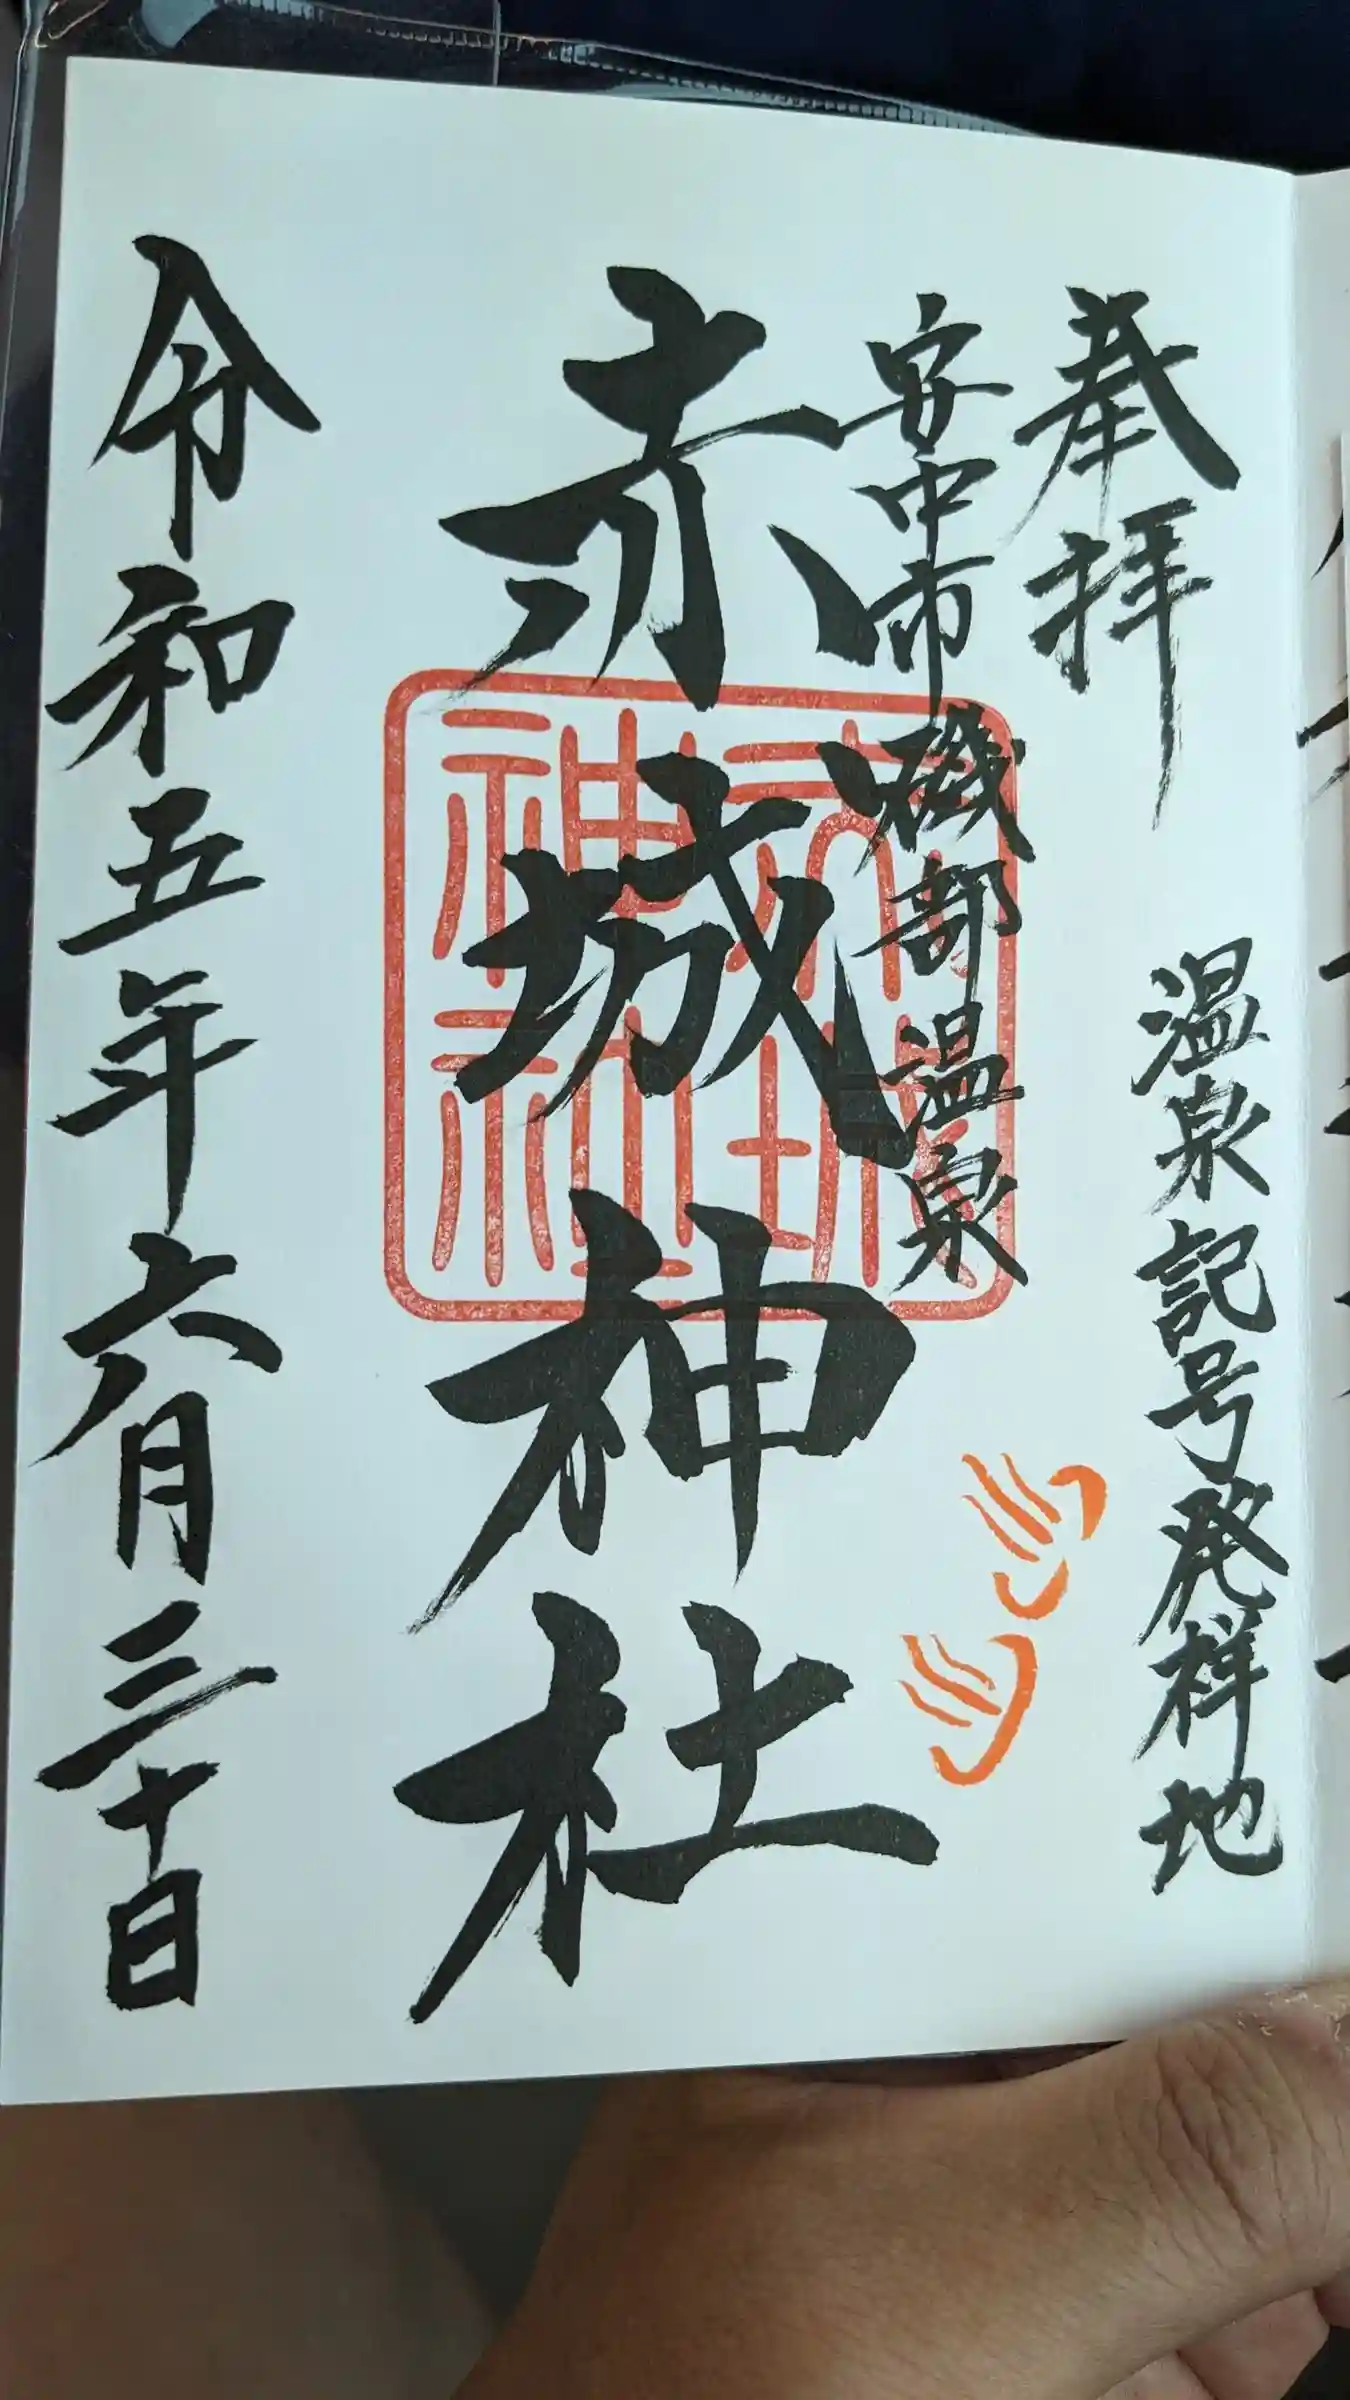 奉拝
温泉記号発祥地
安中市磯部温泉
赤城神社
赤城神社
令和五年六月三十日